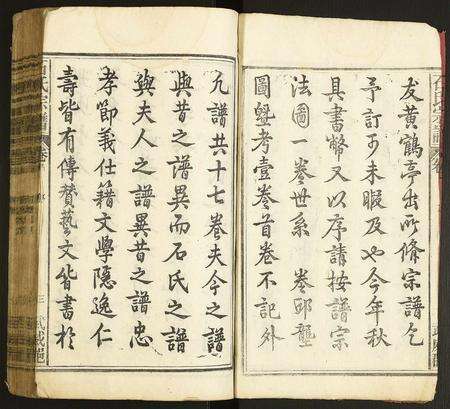 友黃鶴亭出所脩宗譜乞
予訂予未暇及也今年秋
具書幣又以序請按譜宗
法圖一卷世系 卷邱壟
圖盤考壹卷首卷不記外
凡譜共十七卷夫今之譜
與昔之譜異而石氏之譜
與夫人之譜異昔之譜忠
孝節義仕籍文學隱逸仁
壽皆有傳贊藝文皆書於
氏宗譜 卷
三 武威堂